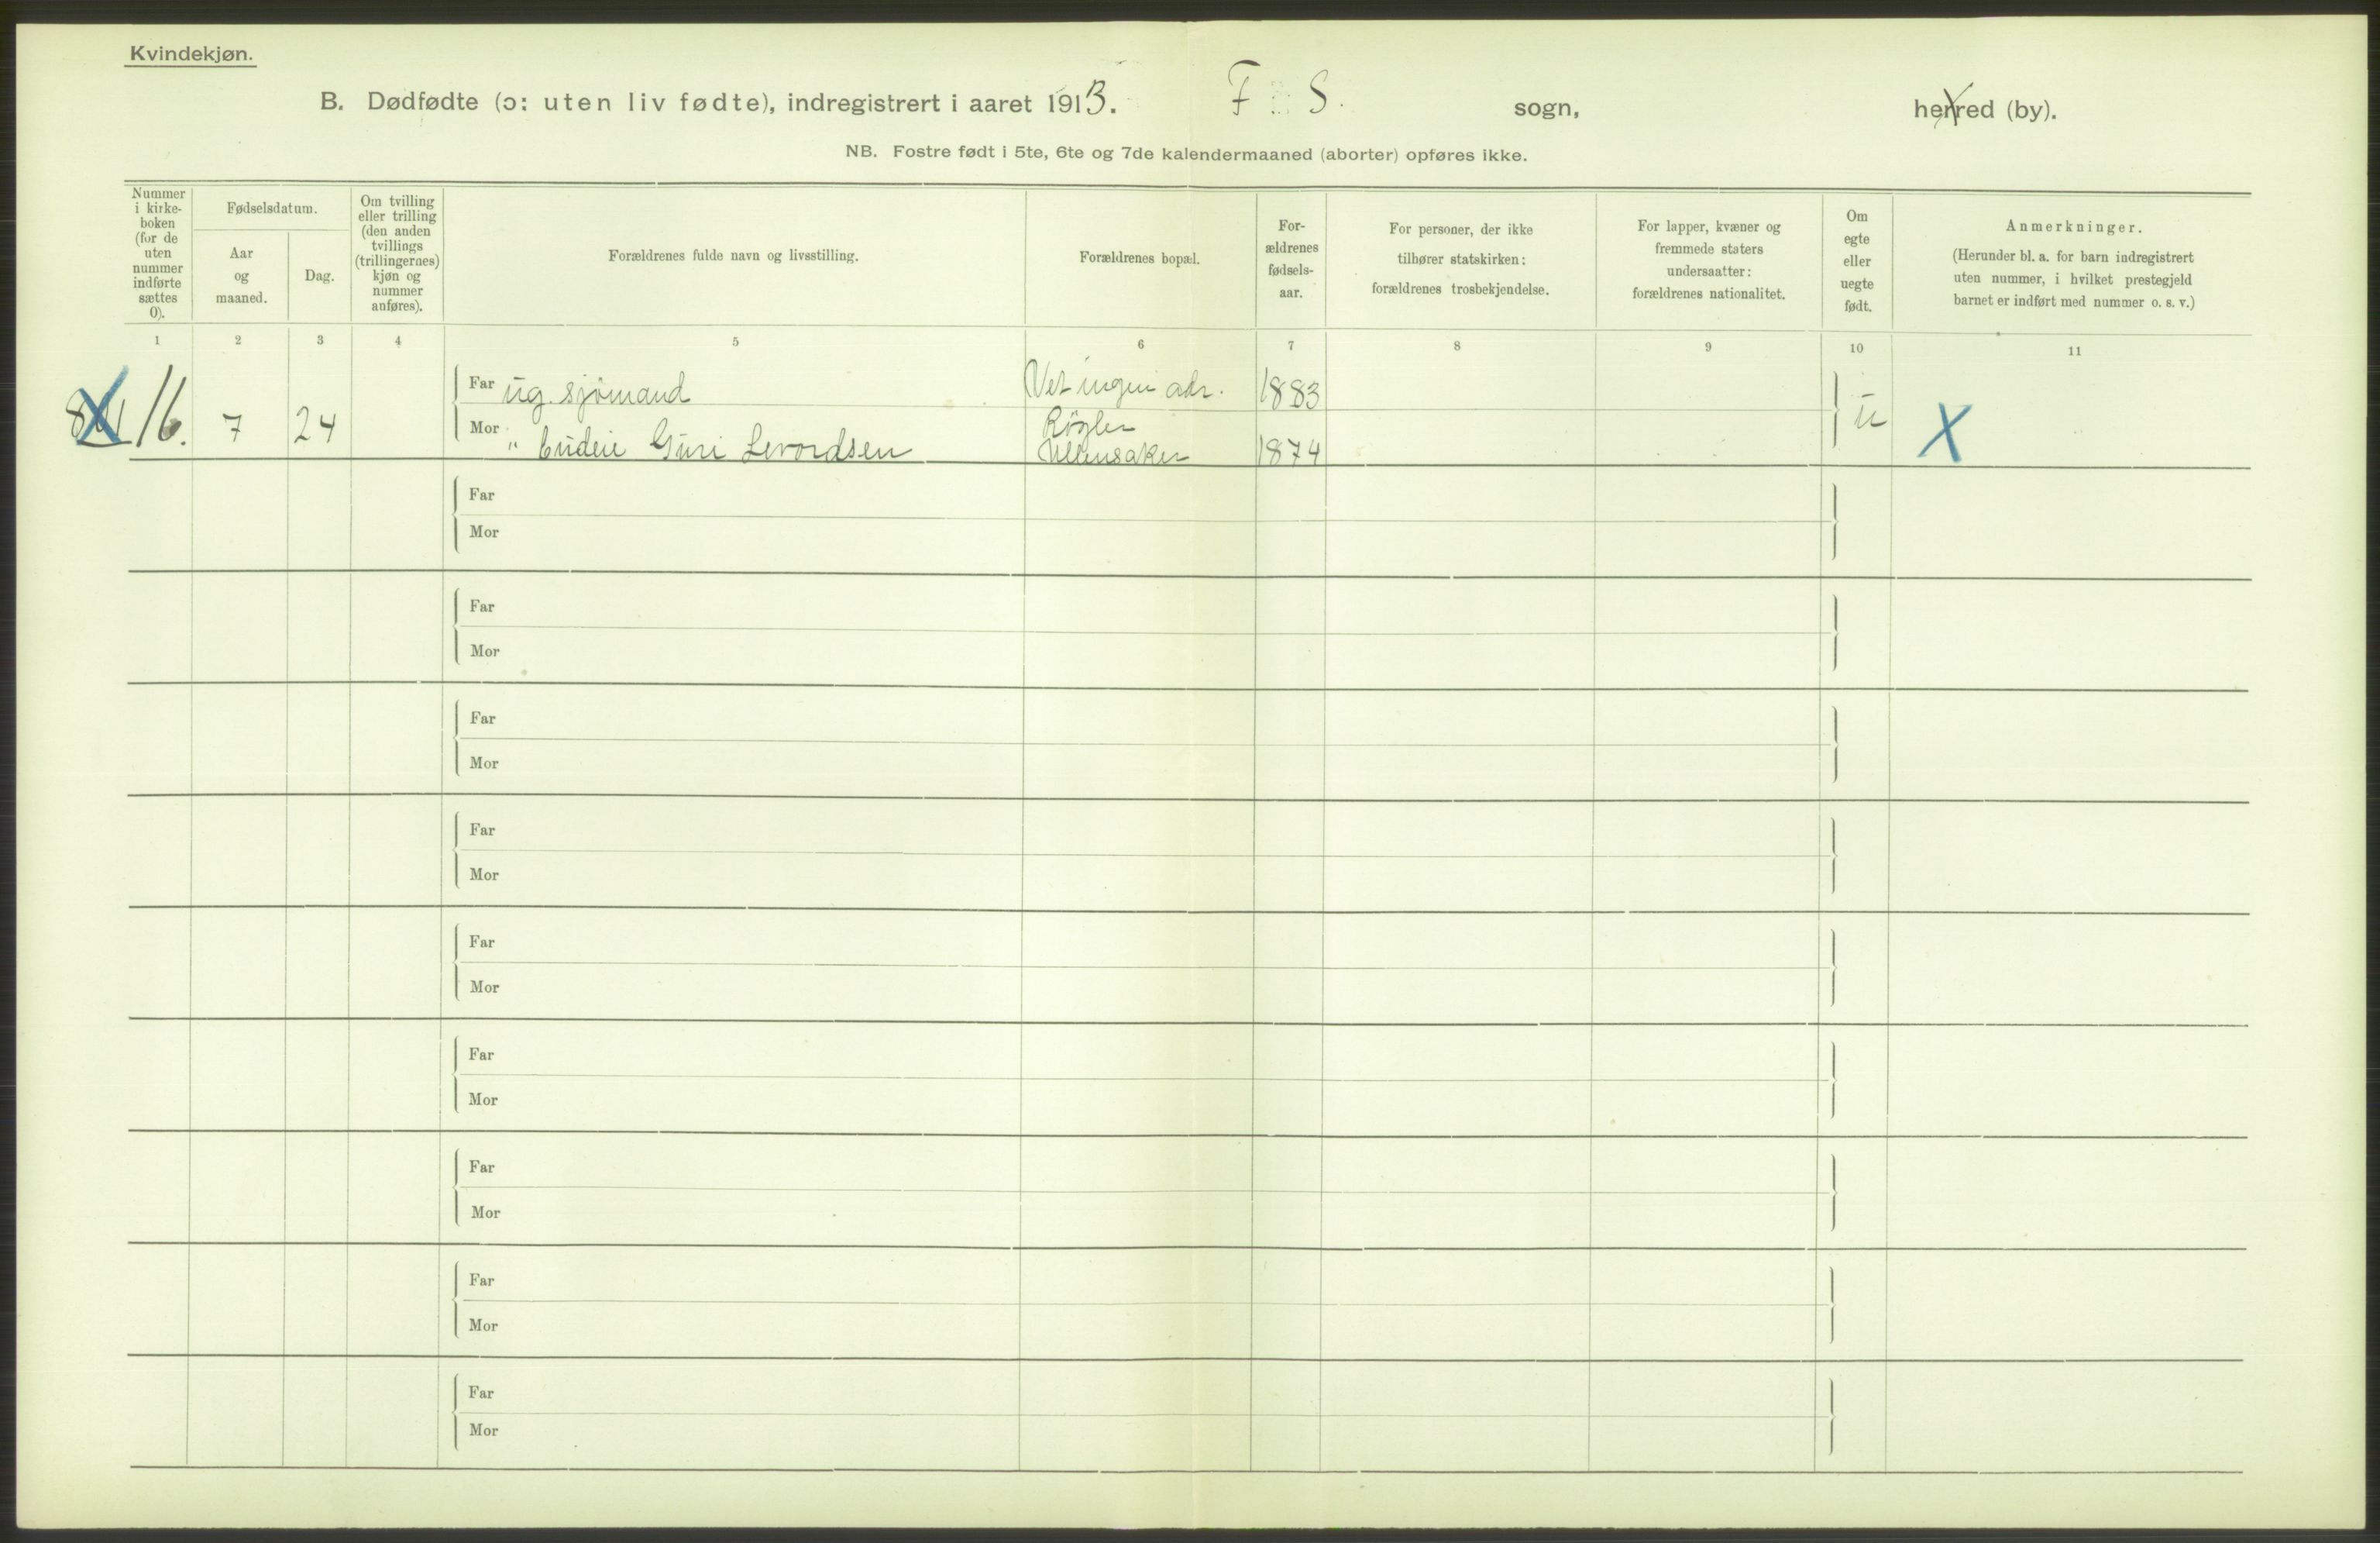 Kvindekjøn.
B. Dødfødte (ɔ: uten liv fødte), indregistrert i aaret 1913. F S. sogn, herred (by).
NB. Fostre født i 5te, 6te og 7de kalendermaaned (aborter) opføres ikke.
Nummer
i kirke-
boken
(for de
uten
nummer
indførte
sættes
0).
Fødselsdatum.
Aar
og
maaned.
Dag.
Om tvilling
eller trilling
(den anden
tvillings
(trillingernes)
kjøn og
nummer
anføres).
Forældrenes fulde navn og livsstilling.
Forældrenes bopæl.
For-
ældrenes
fødsels-
aar.
For personer, der ikke
tilhører statskirken:
forældrenes trosbekjendelse.
For lapper, kvæner og
fremmede staters
undersaatter:
forældrenes nationalitet.
Om
egte
eller
uegte
født.
Anmerkninger.
(Herunder bl. a. for barn indregistrert
uten nummer, i hvilket prestegjeld
barnet er indført med nummer o. s. v.)
1 2 3 4 5 6 7 8 9 10 11
Far ug. sjømand Vet ingen adr. 1883
16. 7 24 u X
Mor " Guri Røgler
Ullensaker 1874
Far
Mor
Far
Mor
Far
Mor
Far
Mor
Far
Mor
Far
Mor
Far
Mor
Far
Mor
Far
Mor